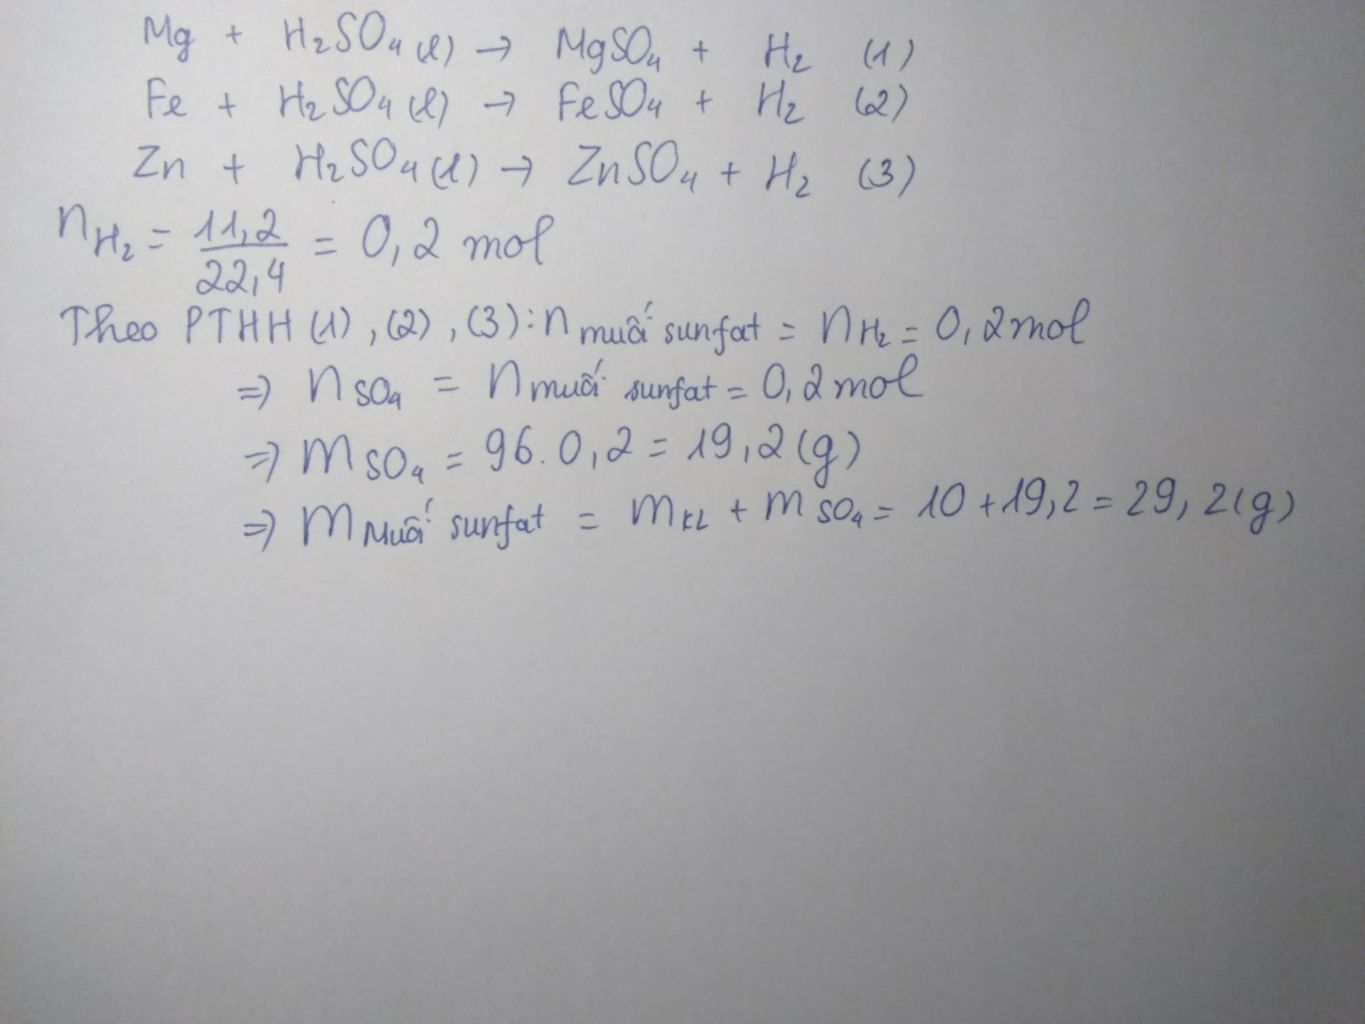 Mg + H₂SO₄ (l) → MgSO₄ + H₂ (1)
Fe + H₂SO₄ (l) → FeSO₄ + H₂ (2)
Zn + H₂SO₄ (l) → ZnSO₄ + H₂ (3)
n H₂ = 11,2 / 22,4 = 0,2 mol
Theo PTHH (1), (2), (3): n muối sunfat = n H₂ = 0,2 mol
⇒ n SO₄ = n muối sunfat = 0,2 mol
⇒ m SO₄ = 96. 0,2 = 19,2 (g)
⇒ m Muối sunfat = m KL + m SO₄ = 10 + 19,2 = 29,2 (g)